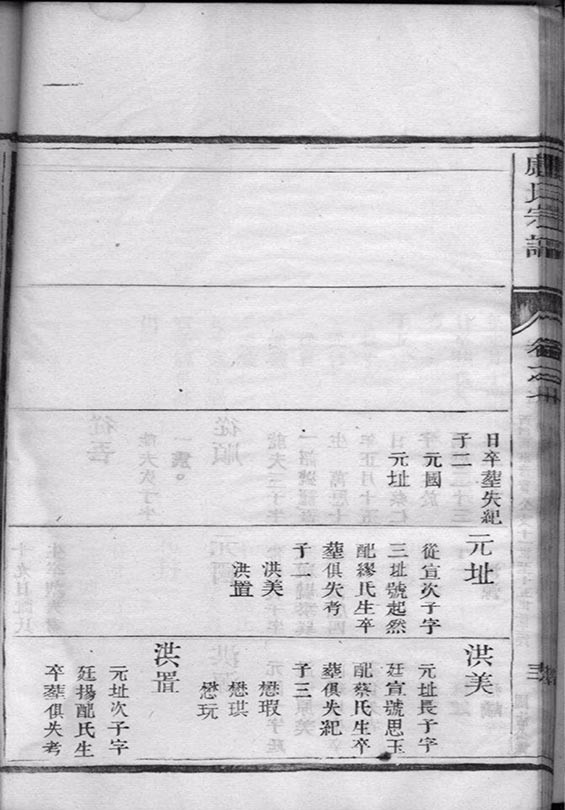 盧氏宗譜
卷之
三
日卒塟失紀
子二
元國
元址
元址
從宣次子字
三址號起然
配繆氏生卒
塟俱失考
子二
洪美
洪置
洪美
元址長子字
廷宣號思玉
配蔡氏生卒
塟俱失紀
子三
懋瑕
懋琪
懋玩
洪置
元址次子字
廷揚配氏生
卒塟俱失考